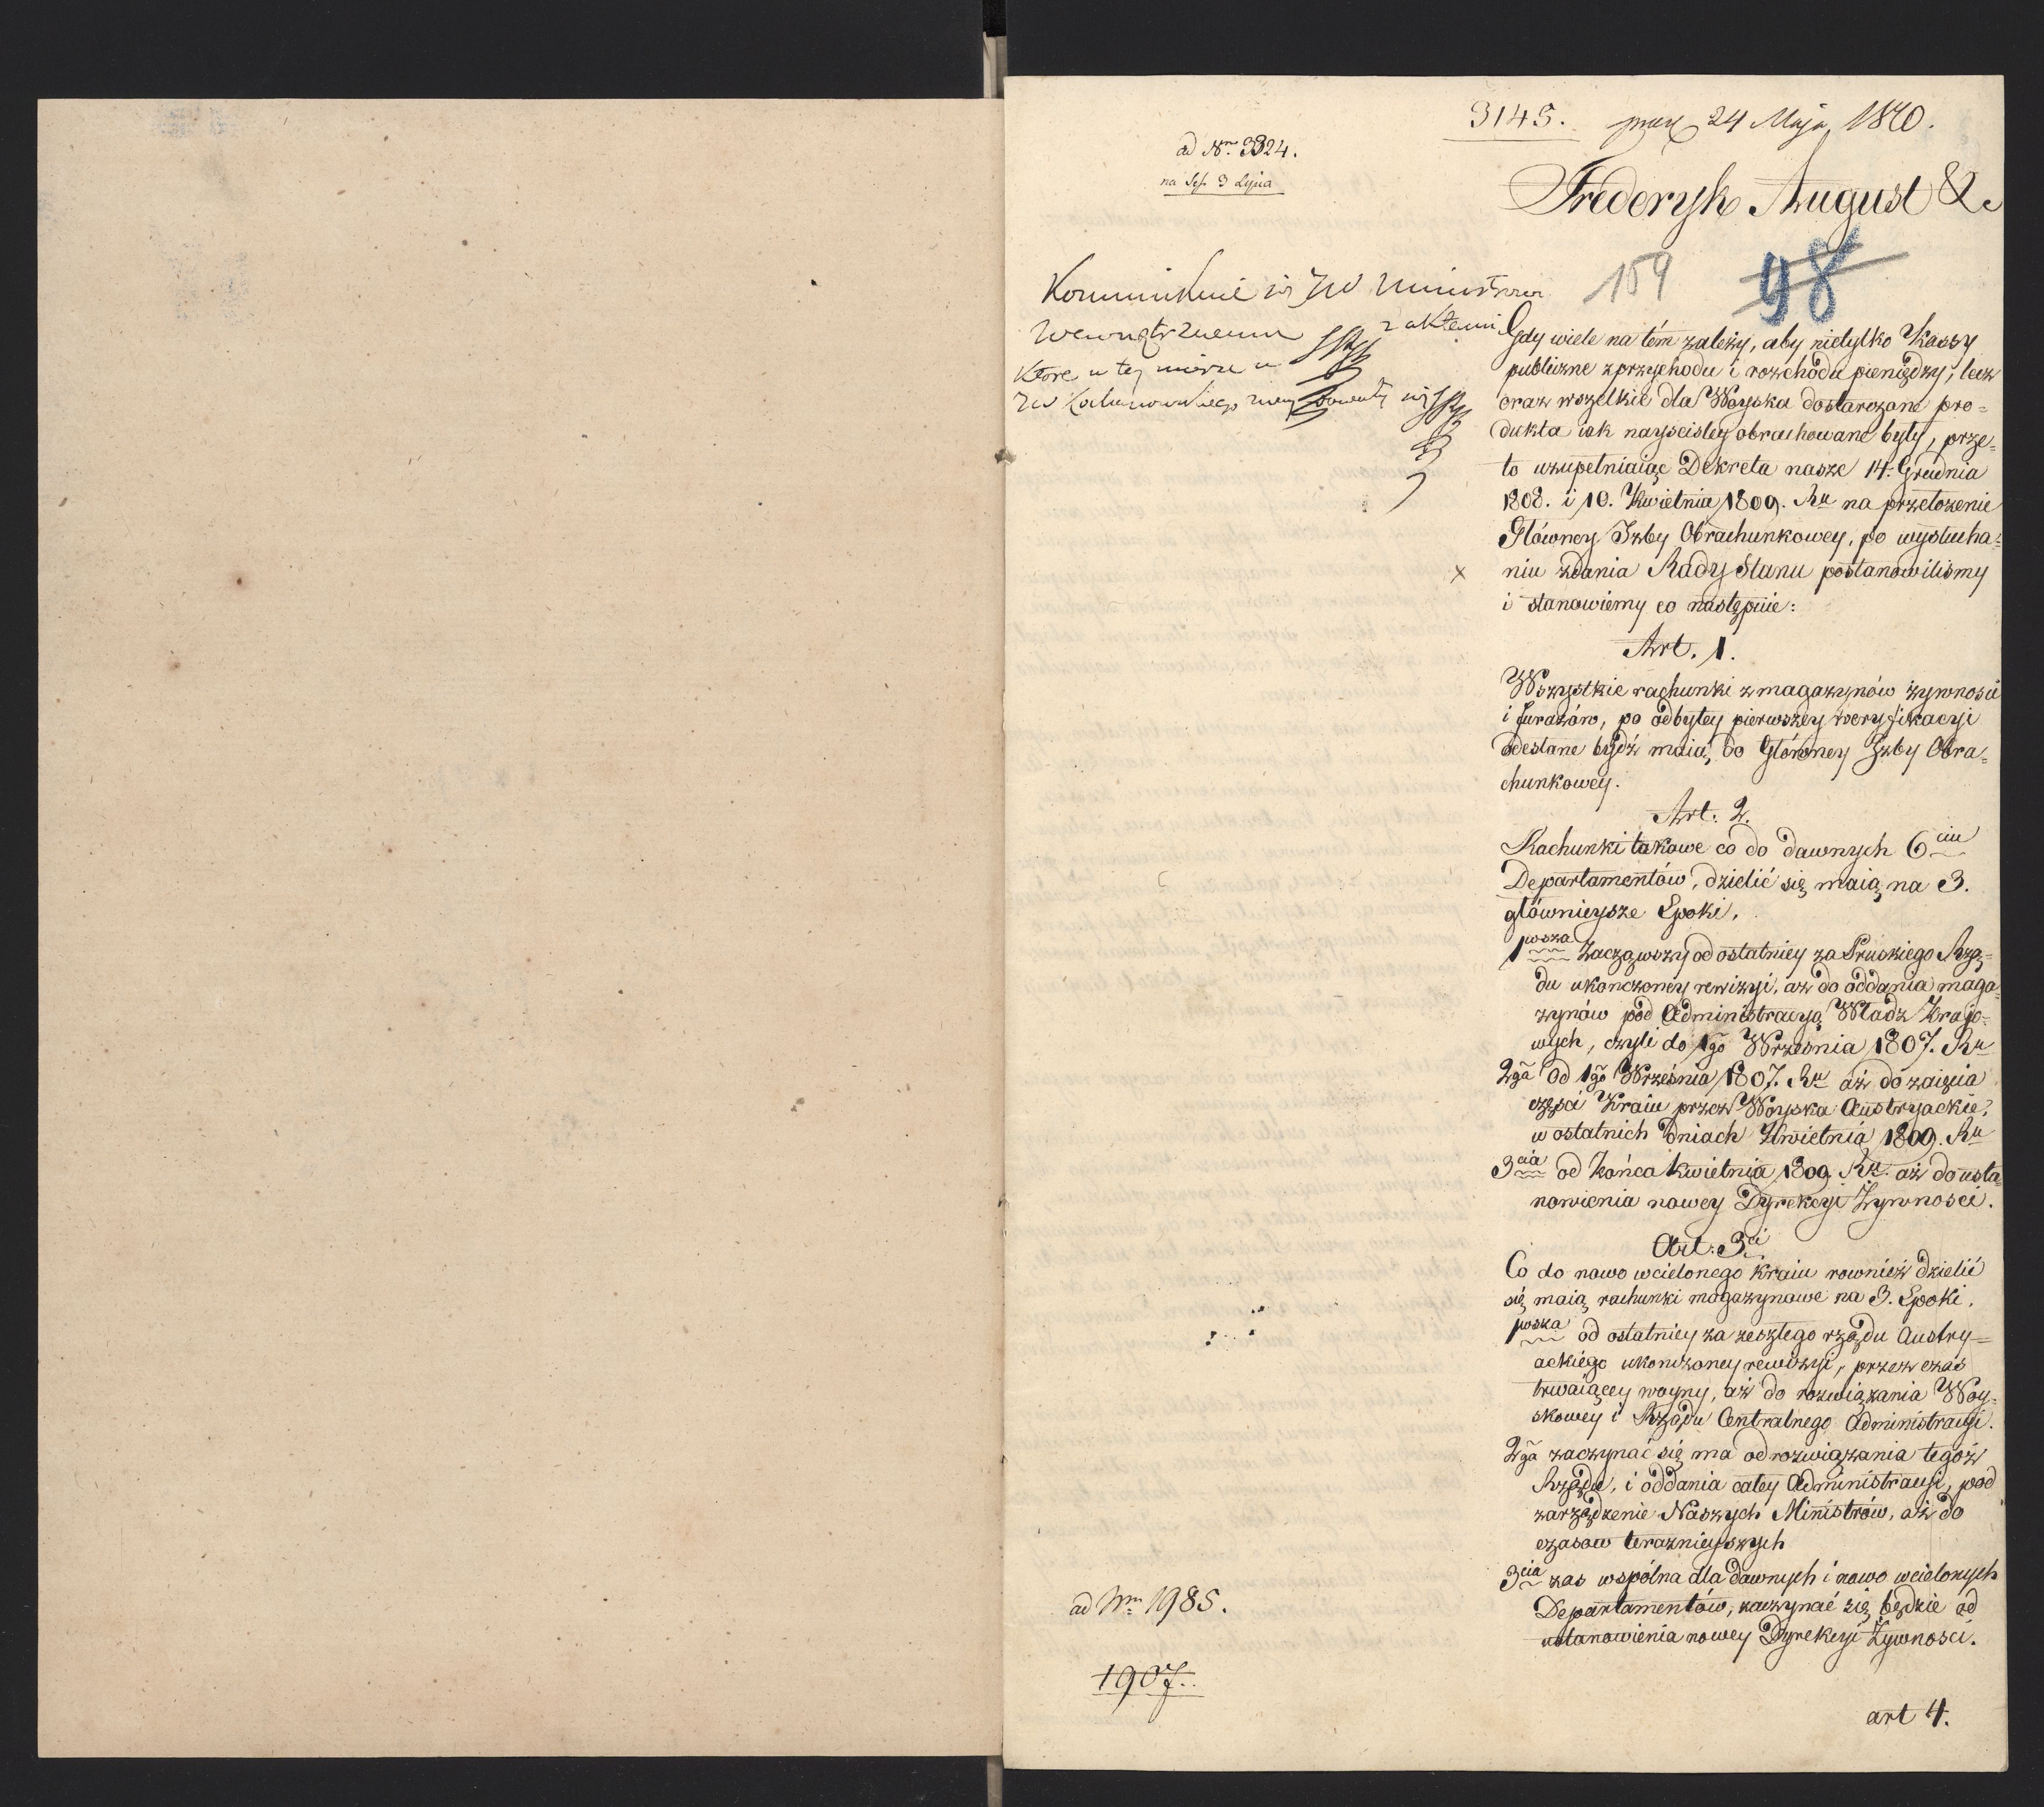 3145. 24 Maja 1810.
ad Nr. 3324.
na Ses. 3 Lipca
Fryderyk August &c
159 98
JW Ministrowi
Wewnętrznemu z aktami
które w tey mierze u
JW
Gdy wiele na tém zależy, aby nietylko Kassy
publiczne z przychodu i rozchodu pieniędzy, lecz
oraz wszelkie dla Woyska dostarczane pro=
dukta iak nayscisley obrachowane były, prze=
to uzupełniaiąc Dekreta nasze 14. Grudnia
1808. i 10. Kwietnia 1809. Ru na przełożenie
Główney Izby Obrachunkowey, po wysłucha=
x niu zdania Rady Stanu postanowilismy
i stanowiemy co następuie:
Art. 1.
Wszystkie rachunki z magazynów żywnosci
i furażów, po odbytey pierwszey weryfikacyi
odesłane bydź maią, do Główney Izby Obra=
chunkowey.
Art: 2.
Rachunki takowe co do dawnych 6ciu
Departamentów, dzielić się maią na 3.
głównieysze Epoki.
1wsza Zacząwszy od ostatniey za Pruskiego Rzą=
du ukonczoney rewizyi, aż do oddania maga=
zynów pod Administracyą Władz Krajo=
wych, czyli do 1go Września 1807. Ru
2ga Od 1go Września 1807. Ru aż do zaięcia
częsci Kraiu przez Woyska Austryackie,
w ostatnich dniach Kwietnia 1809. Ru
3cia od końca kwietnia 1809 Ru. aż do usta=
nowienia nowey Dyrekcyi Żywnosci.
Art: 3ci
Co do nowo wcielonego kraiu rownież dzielić
się maią rachunki magazynowe na 3. Epoki.
1wsza od ostatniey za zeszłego rządu Austry=
ackiego ukonczoney rewizyi, przez czas
trwaiącey woyny, aż do rozwiązania Woy=
skowey i Rządu Centralnego Administracyi.
2ga zaczynać się ma od rozwiązania tegoż
Rządu, i oddania całey Administracyi, pod
zarządzenie Naszych Ministrów, aż do
czasow teraznieyszych
3cia zas wspólna dla dawnych i nowo wcielonych
Departamentów, zaczynać się będzie od
ustanowienia nowey Dyrekcyi Żywnosci.
ad Nrm 1985.
1907.
art 4.